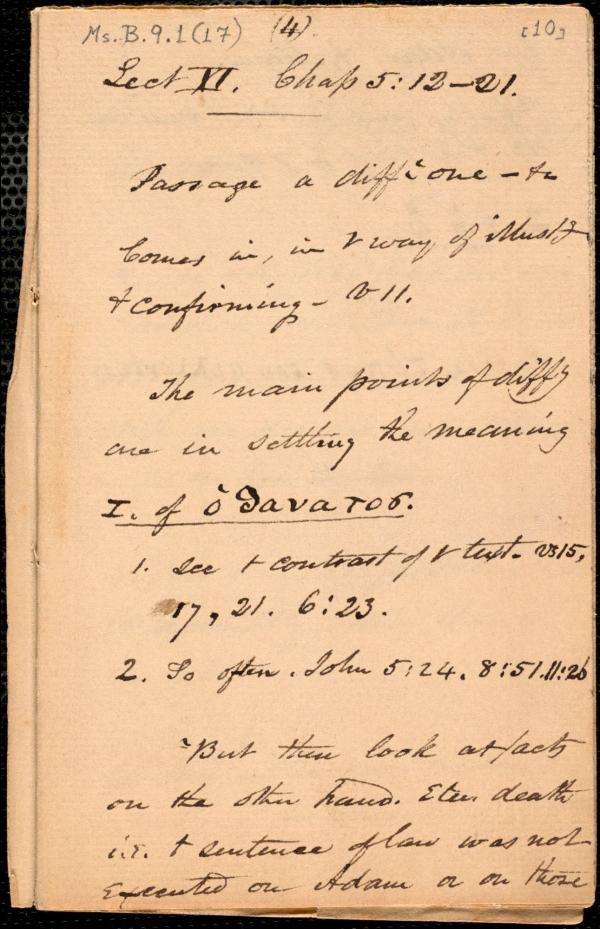 Ms.B.9.1(17) (4). [10]
Lect VI. Chap 5: 12-21.
Passage a difft one -
Comes in, in t way of illustg
& confirming - v 11.
The main points of diffy
are in settling the meaning
I. of ὁ θανατος.
1. See t contrast of t text. vs 15,
17, 21. 6:23.
2. So often. John 5:24. 8:51. 11:26
But then look at facts
on the other hand. Eter. death
i.e. t sentence of law was not
Executed on Adam or on those